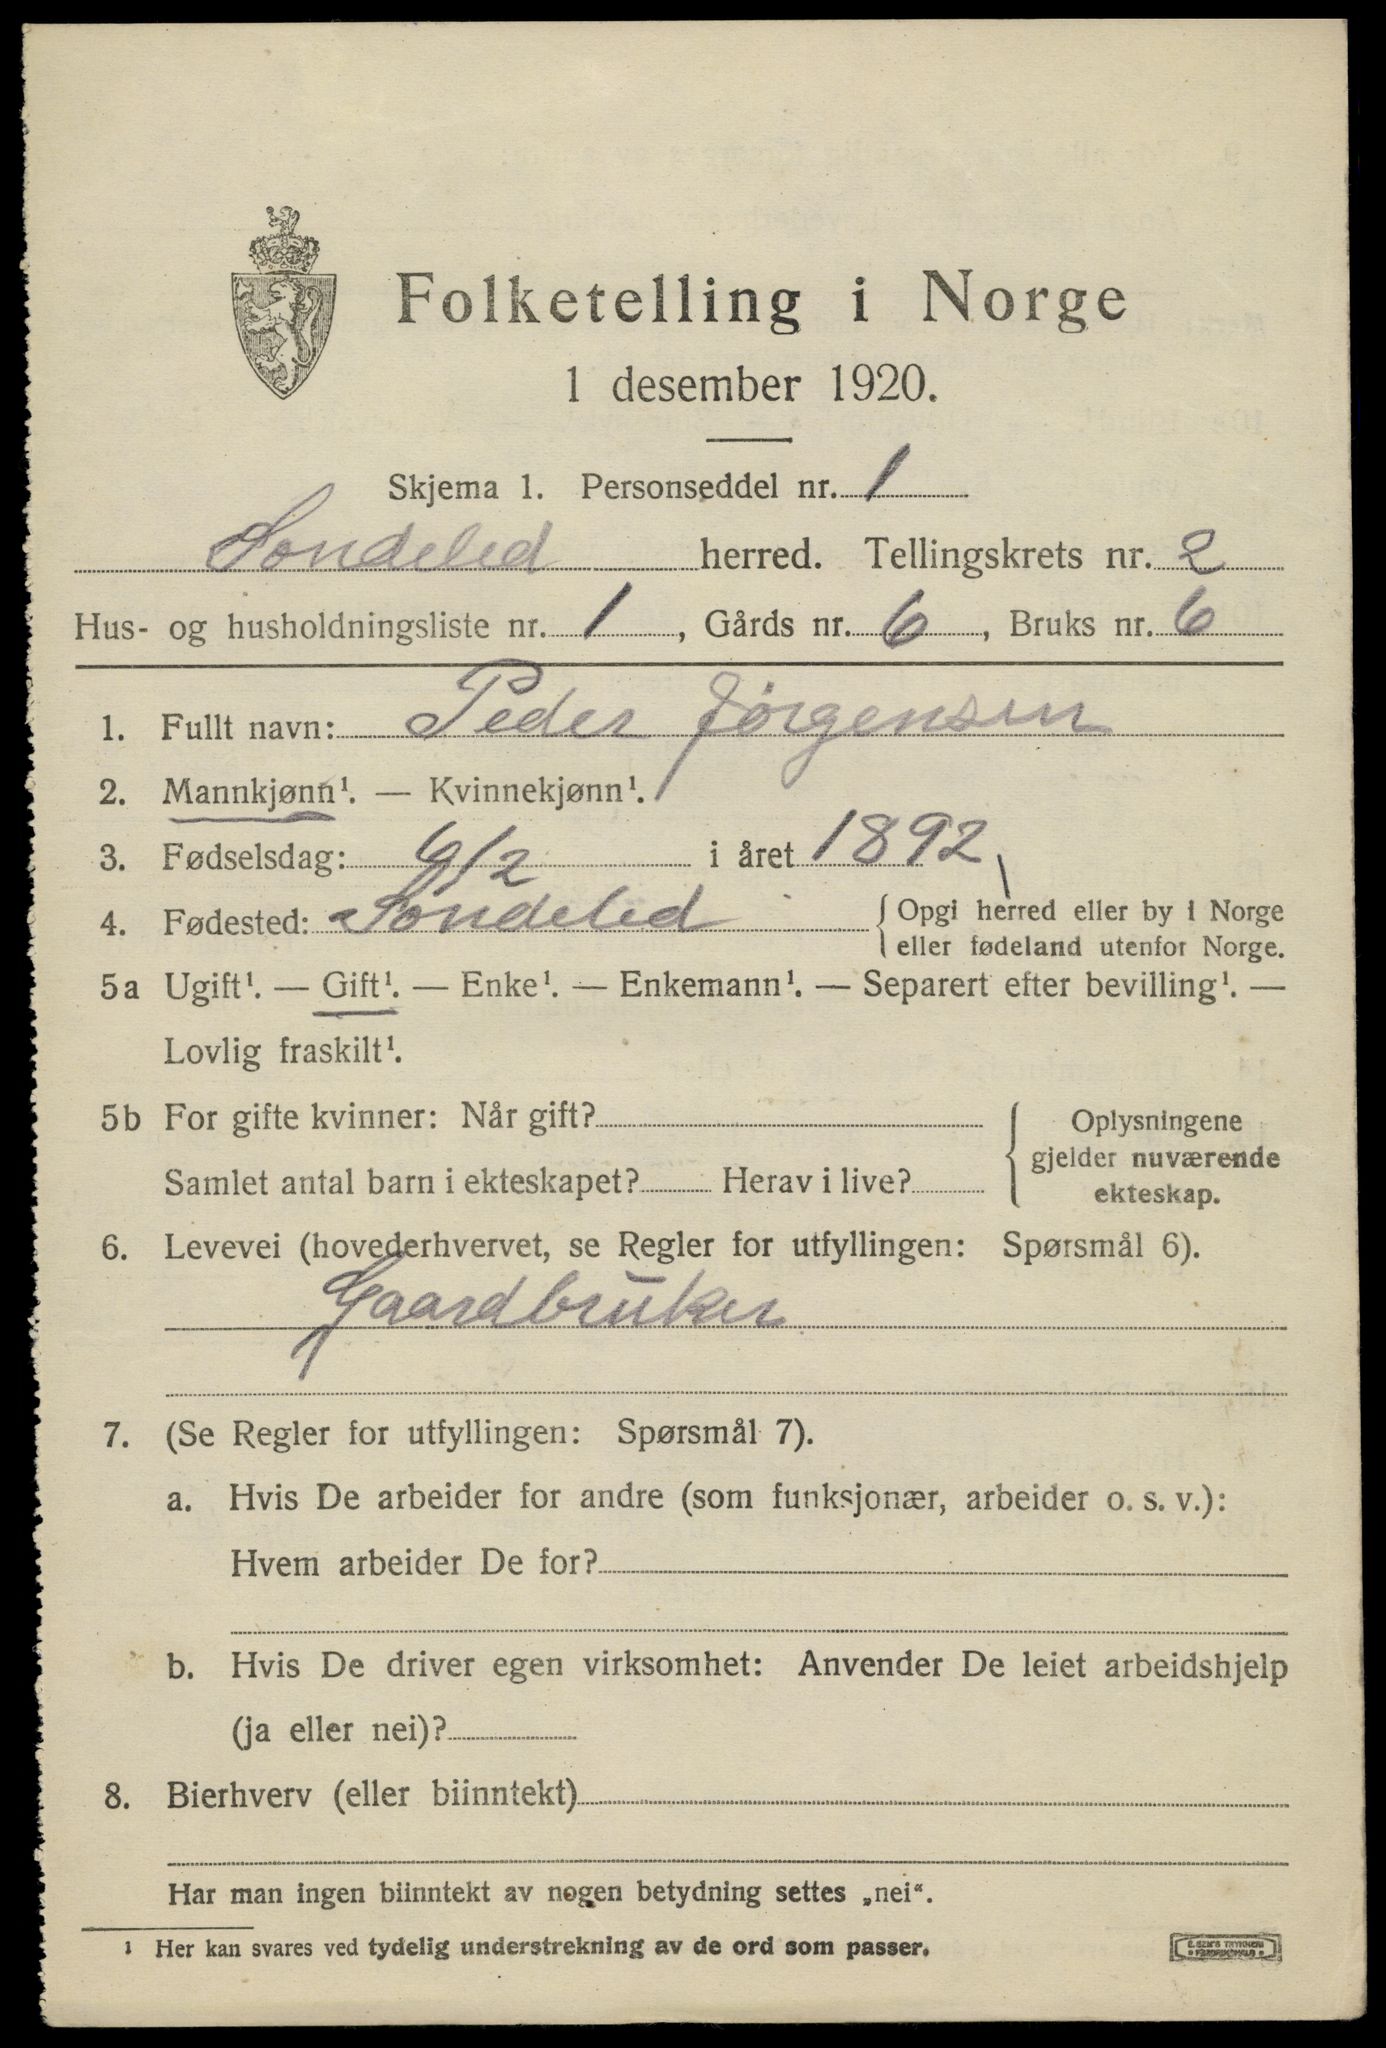 Folketelling i Norge
1 desember 1920.
Skjema 1. Personseddel nr. 1
Sondeled herred. Tellingskrets nr. 2
Hus- og husholdningsliste nr. 1, Gårds nr. 6, Bruks nr. 6
1. Fullt navn: Peder Jörgensen
2. Mannkjønn¹. — Kvinnekjønn¹.
3. Fødselsdag: 6/2 i året 1892
4. Fødested: Söndeled { Opgi herred eller by i Norge
eller fødeland utenfor Norge.
5a Ugift¹. — Gift¹. — Enke¹. — Enkemann¹. — Separert efter bevilling¹. —
Lovlig fraskilt¹.
5b For gifte kvinner: Når gift? { Oplysningene
gjelder nuværende
Samlet antal barn i ekteskapet? Herav i live? ekteskap.
6. Levevei (hovederhvervet, se Regler for utfyllingen: Spørsmål 6).
Gaardbruker
7. (Se Regler for utfyllingen: Spørsmål 7).
a. Hvis De arbeider for andre (som funksjonær, arbeider o. s. v.):
Hvem arbeider De for?
b. Hvis De driver egen virksomhet: Anvender De leiet arbeidshjelp
(ja eller nei)?
8. Bierhverv (eller biinntekt)
Har man ingen biinntekt av nogen betydning settes „nei“.
¹ Her kan svares ved tydelig understrekning av de ord som passer.